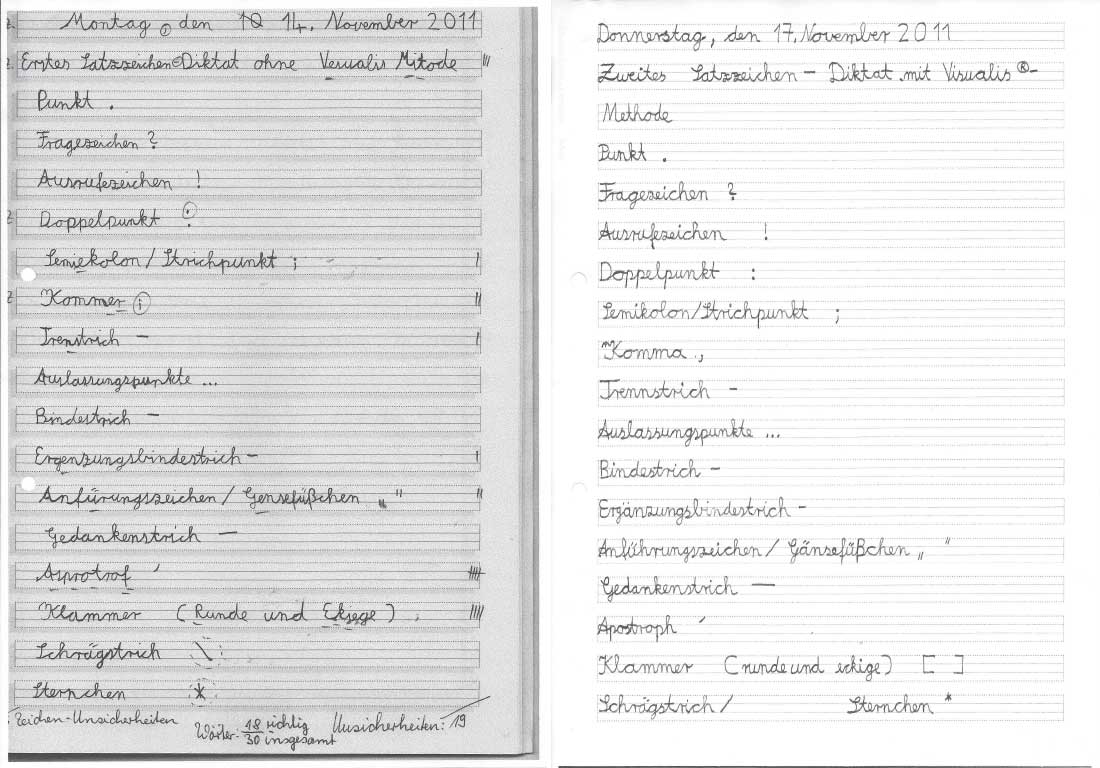 Montag, den 14. November 2011
Erstes Satzzeichen-Diktat ohne Vesualis Mitode
Punkt .
Fragezeichen ?
Ausrufezeichen !
Doppelpunkt :
Semiekolon/Strichpunkt ;
Kommer ,
Trenstrich –
Auslassungspunkte ...
Bindestrich –
Ergenzungsbindestrich –
Anfürungszeichen / Gensefüßchen „ "
Gedankenstrich —
Asprotrof ´
Klammer ( Runde und Ekiege ) ,
Schrägstrich \
Sternchen *
Zeichen-Unsicherheiten
Wörter: 18 richtig
30 insgesamt
Unsicherheiten: 19
Donnerstag, den 17. November 2011
Zweites Satzzeichen – Diktat mit Visualis ®-
Methode
Punkt .
Fragezeichen ?
Ausrufezeichen !
Doppelpunkt :
Semikolon/Strichpunkt ;
Komma ,
Trennstrich -
Auslassungspunkte ...
Bindestrich -
Ergänzungsbindestrich -
Anführungszeichen / Gänsefüßchen „ "
Gedankenstrich —
Apostroph ´
Klammer (runde und eckige) [ ]
Schrägstrich / Sternchen *